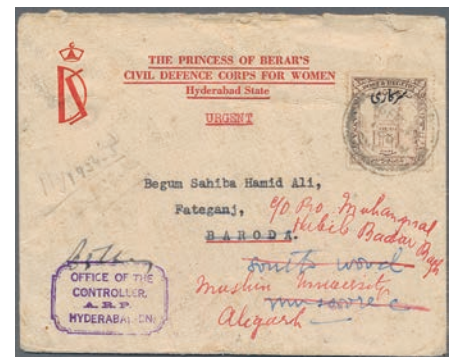 THE PRINCESS OF BERAR'S
CIVIL DEFENCE CORPS FOR WOMEN
Hyderabad State
URGENT
سرکاری
Begum Sahiba Hamid Ali,
Fateganj,
BARODA.
c/o Pro.
Habib
Bagh
South Wood
Muslim University
Mussoorie
Aligarh
OFFICE OF THE
CONTROLLER,
A.R.P.
HYDERABAD-DN.